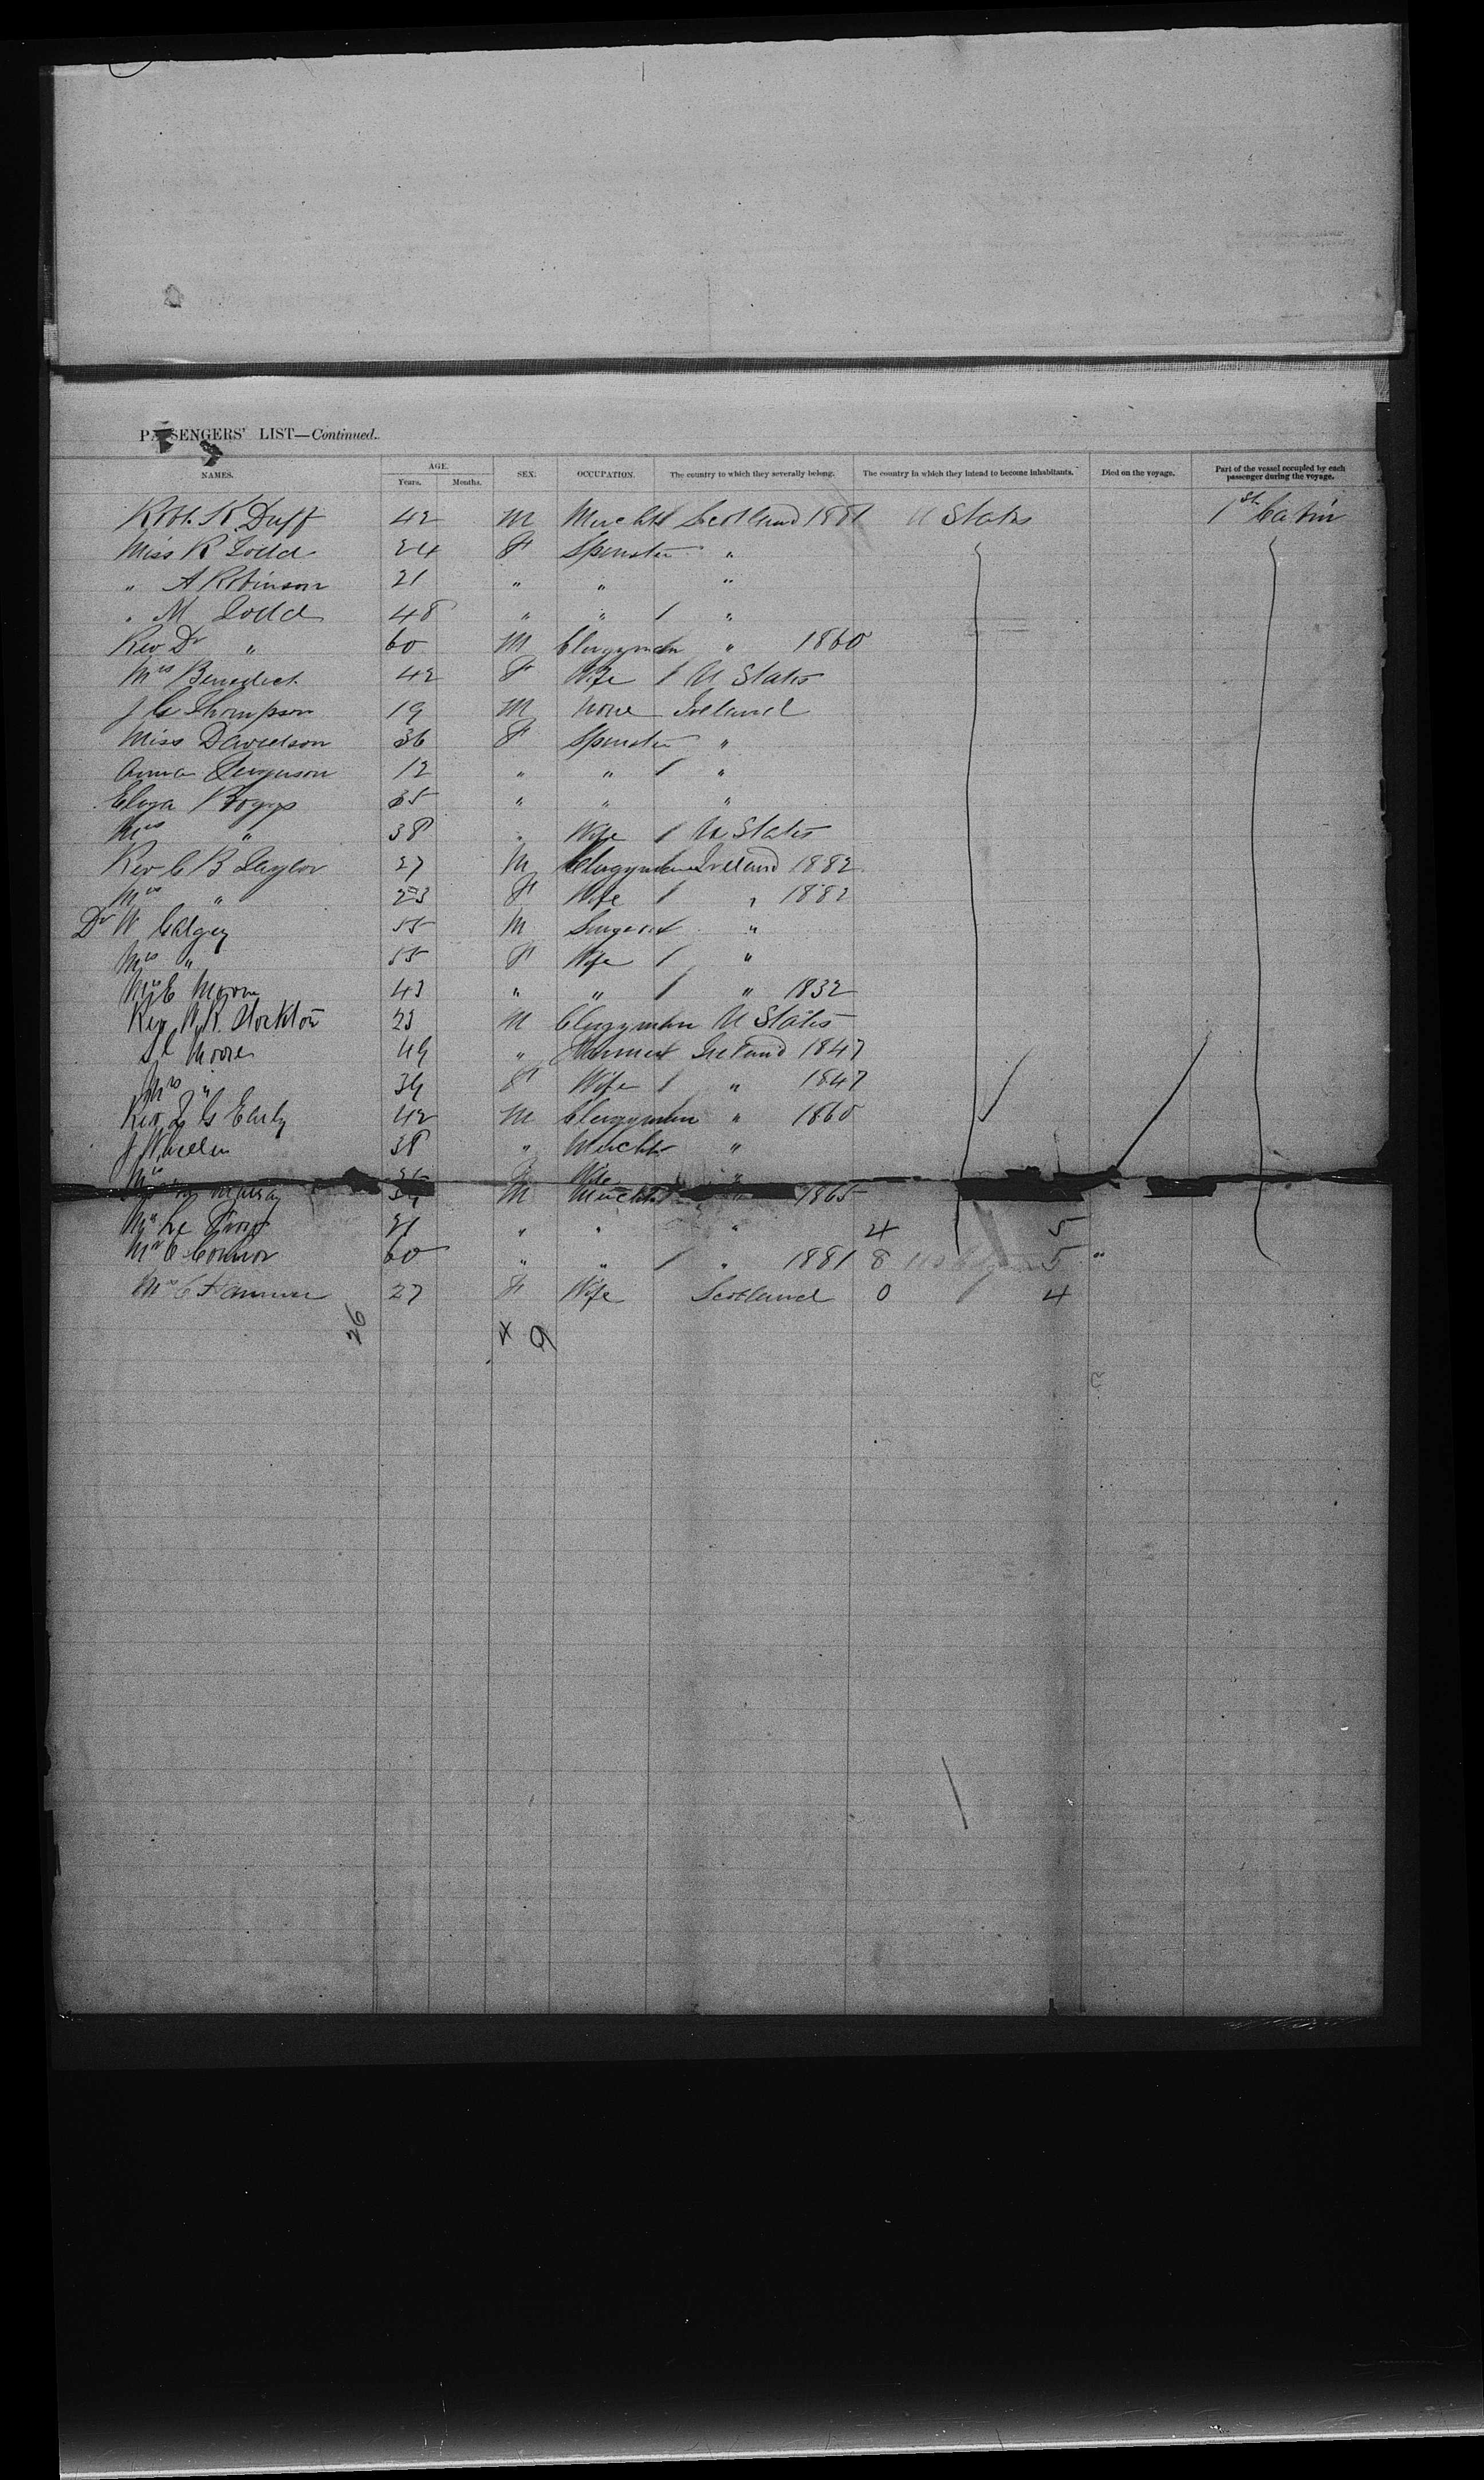 PASSENGERS' LIST—Continued.
NAMES. AGE. Years. Months. SEX. OCCUPATION. The country to which they severally belong. The country in which they intend to become inhabitants. Died on the voyage. Part of the vessel occupied by each passenger during the voyage.
Robt. K. Duff 42 M Mercht Scotland 1881 U States 1st Cabin
Miss R Todd 24 F Spinster "
" A Robinson 21 " " "
" M Todd 48 " " 1 "
Rev Dr " 60 M Clergyman " 1860
Mrs Benedict 42 F Wife 1 U States
J G Thompson 19 M None Ireland
Miss Davidson 36 F Spinster "
Anna Ferguson 12 " " 1 "
Eliza Boggs 35 " " "
Mrs " 38 " Wife 1 U States
Rev C B Taylor 27 M Clergyman Ireland 1882
Mrs " 23 F Wife 1 " 1882
Dr W 55 M Surgeon "
Mrs " 55 F Wife 1 "
Mrs E 43 " " 1 " 1832
Rev W R Stockton 23 M Clergyman U States
S C Moore 49 " Ireland 1847
Mrs " 39 F Wife 1 " 1847
Rev Early 42 M Clergyman " 1860
J 38 " Mercht "
Mrs Wife "
Murray M Mercht 1865
Mr 21 " " " 4 5
Mr O'Connor 60 " " 1 " 1881 8 5 "
Mrs C 27 F Wife Scotland 0 4
26 x 9